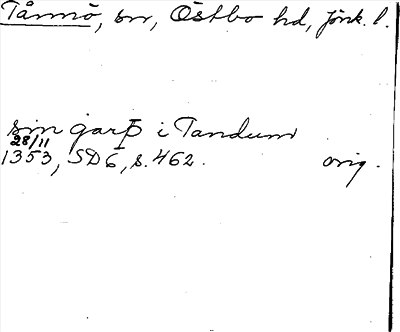 Tånnö, sn, Östbo hd, Jönk. l.
sin garþ i Tandum
28/11
1353, SD 6, s. 462. orig.